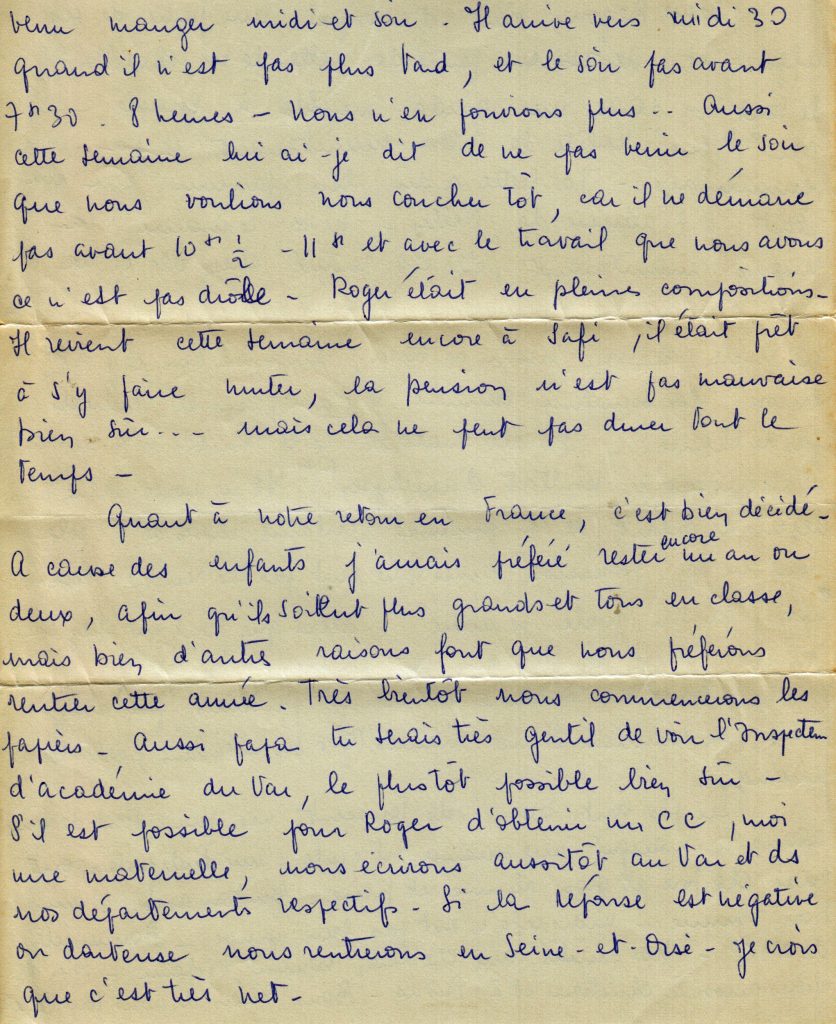 venu manger midi et soir. Il arrive vers midi 30
quand il n'est pas plus tard, et le soir pas avant
7h30. 8 heures - Nous n'en pouvions plus.. Aussi
cette semaine lui ai-je dit de ne pas venir le soir
que nous voulions nous coucher tôt, car il ne démarre
pas avant 10h 1/2 - 11h et avec le travail que nous avons
ce n'est pas drôle - Roger était en pleines compositions -
Il revient cette semaine encore à Safi, il était prêt
à s'y faire muter, la pension n'est pas mauvaise
bien sûr... mais cela ne peut pas durer tout le
temps -
Quant à notre retour en France, c'est bien décidé -
A cause des enfants j'aurais préféré rester encore un an ou
deux, afin qu'ils soient plus grands et tous en classe,
mais bien d'autres raisons font que nous préférons
rentrer cette année. Très bientôt nous commencerons les
papiers - Aussi papa tu serais très gentil de voir l'Inspecteur
d'académie du Var, le plus tôt possible bien sûr -
S'il est possible pour Roger d'obtenir un CC, moi
une maternelle, nous écrirons aussitôt au Var et ds
nos départements respectifs - Si la réponse est négative
ou douteuse nous rentrerons en Seine-et-Oise - Je crois
que c'est très net -